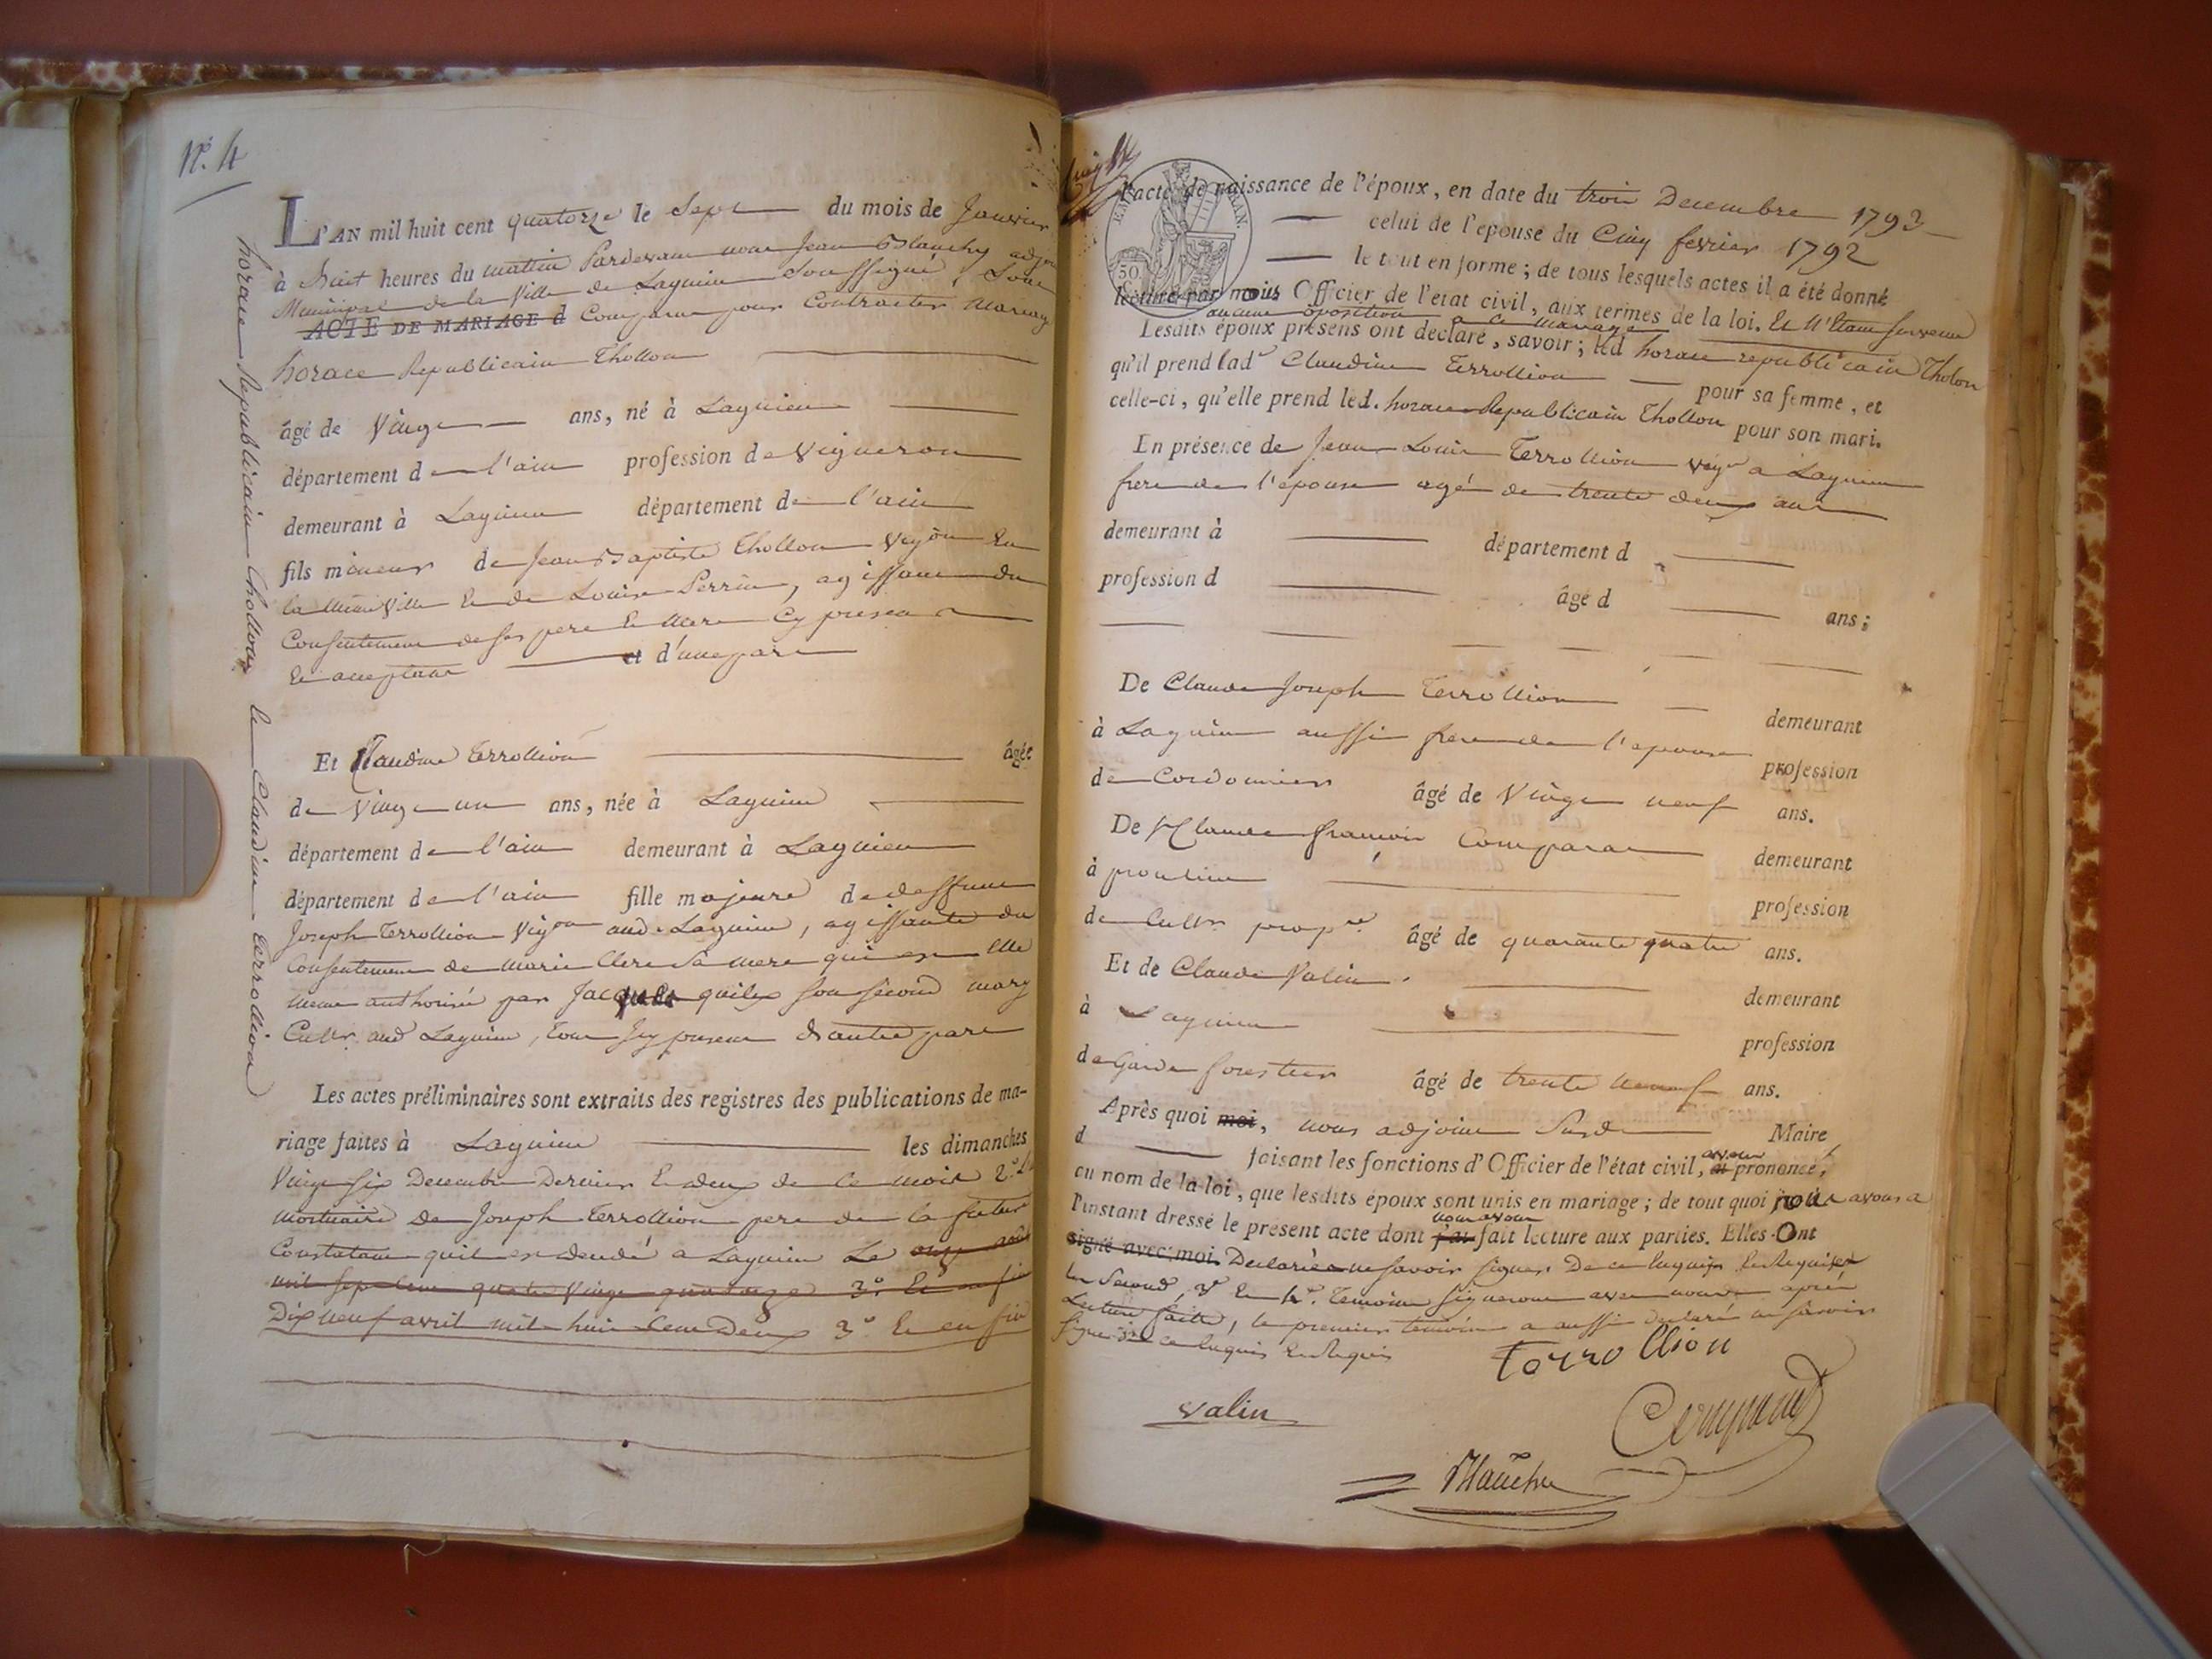 N.° 4
horace Republicain Thollon et Claudine Terrollion
L'AN mil huit cent quatorze le Sept du mois de Janvier
à huit heures du mattin Pardevant nous Jean Blanchy adjoin
Municipal de la Ville de Lagnieu Soussigné, Sont
ACTE DE MARIAGE d Comparus pour Contracter Mariage
horace Republicain Thollon
âgé de Vingt ans, né à Lagnieu
département de l'ain profession de Vigneron
demeurant à Lagnieu département de l'ain
fils mineur de Jean Baptiste Thollon Vigon en
la meme Ville et de Louise Perrin, agissant du
Consentement de ses pere et Mere Cy presen
et acceptant et d'une part
Et Claudine Terrollion âgée
de Vingt un ans, née à Lagnieu
département de l'ain demeurant à Lagnieu
département de l'ain fille majeure de deffunt
Joseph Terrollion Vigon aud. Lagnieu, agissante du
Consentement de Marie Clere Sa Mere qui est Elle
meme authorisé par Jacques quilex son second mary
Cultr. aud Lagnieu, tous Icy present d'autre part
Les actes préliminaires sont extraits des registres des publications de ma-
riage faites à Lagnieu les dimanches
Vingt six Decembre Dernier Et deux de Ce mois 2.°
Mortuaire De Joseph Terrollion pere de la futur
Constatant quil est décédé a Lagnieu Le onze août
mil sept cent quatre Vingt quatorze 3.° Et enfin
Dix neuf avril mil huit Cent Deux 3.° Et enfin
l'acte de naissance de l'époux, en date du trois Decembre 1793
celui de l'epouse du Cinq fevrier 1792
le tout en forme; de tous lesquels actes il a été donné
lecture par nous Officier de l'etat civil, aux termes de la loi. Et N'Etant survenu
aucune oposition a ce mariage
Lesdits époux présens ont declaré, savoir; led horace republicain Tholon
qu'il prend lad.e Claudine Terrollion pour sa femme, et
celle-ci, qu'elle prend led. horace Republicain Thollon pour son mari.
En présence de Jean Louis Terrollion Vigr a Lagnieu
frere de l'épouse agé de trente deux ans
demeurant à département d
profession d âgé d ans;
De Claude Joseph Terrollion demeurant
à Lagnieu aussi frere de l'epouse profession
de Cordonnier âgé de Vingt neuf ans.
De Claude françois Comparat demeurant
à proulieu profession
de Cultr. prop.re âgé de quarante quatre ans.
Et de Claude Valin demeurant
à Lagnieu profession
de Garde forestier âgé de trente neuf ans.
Après quoi moi, nous adjoint Susd Maire
d faisant les fonctions d'Officier de l'état civil, ai avons prononcé,
au nom de la loi, que lesdits époux sont unis en mariage; de tout quoi nous avons a
l'instant dressé le présent acte dont j'ai nous avons fait lecture aux parties. Elles Ont
signé avec moi Declarées ne savoir signer De ce Enquis Et Requises
les Second, 3.e Et 4.e temoins signeront avec nous après
Lecture faite, le premier temoin a aussi declaré ne savoir
signer de ce Enquis Et Requis
terrollion
Valin
Comparat
Blanchy